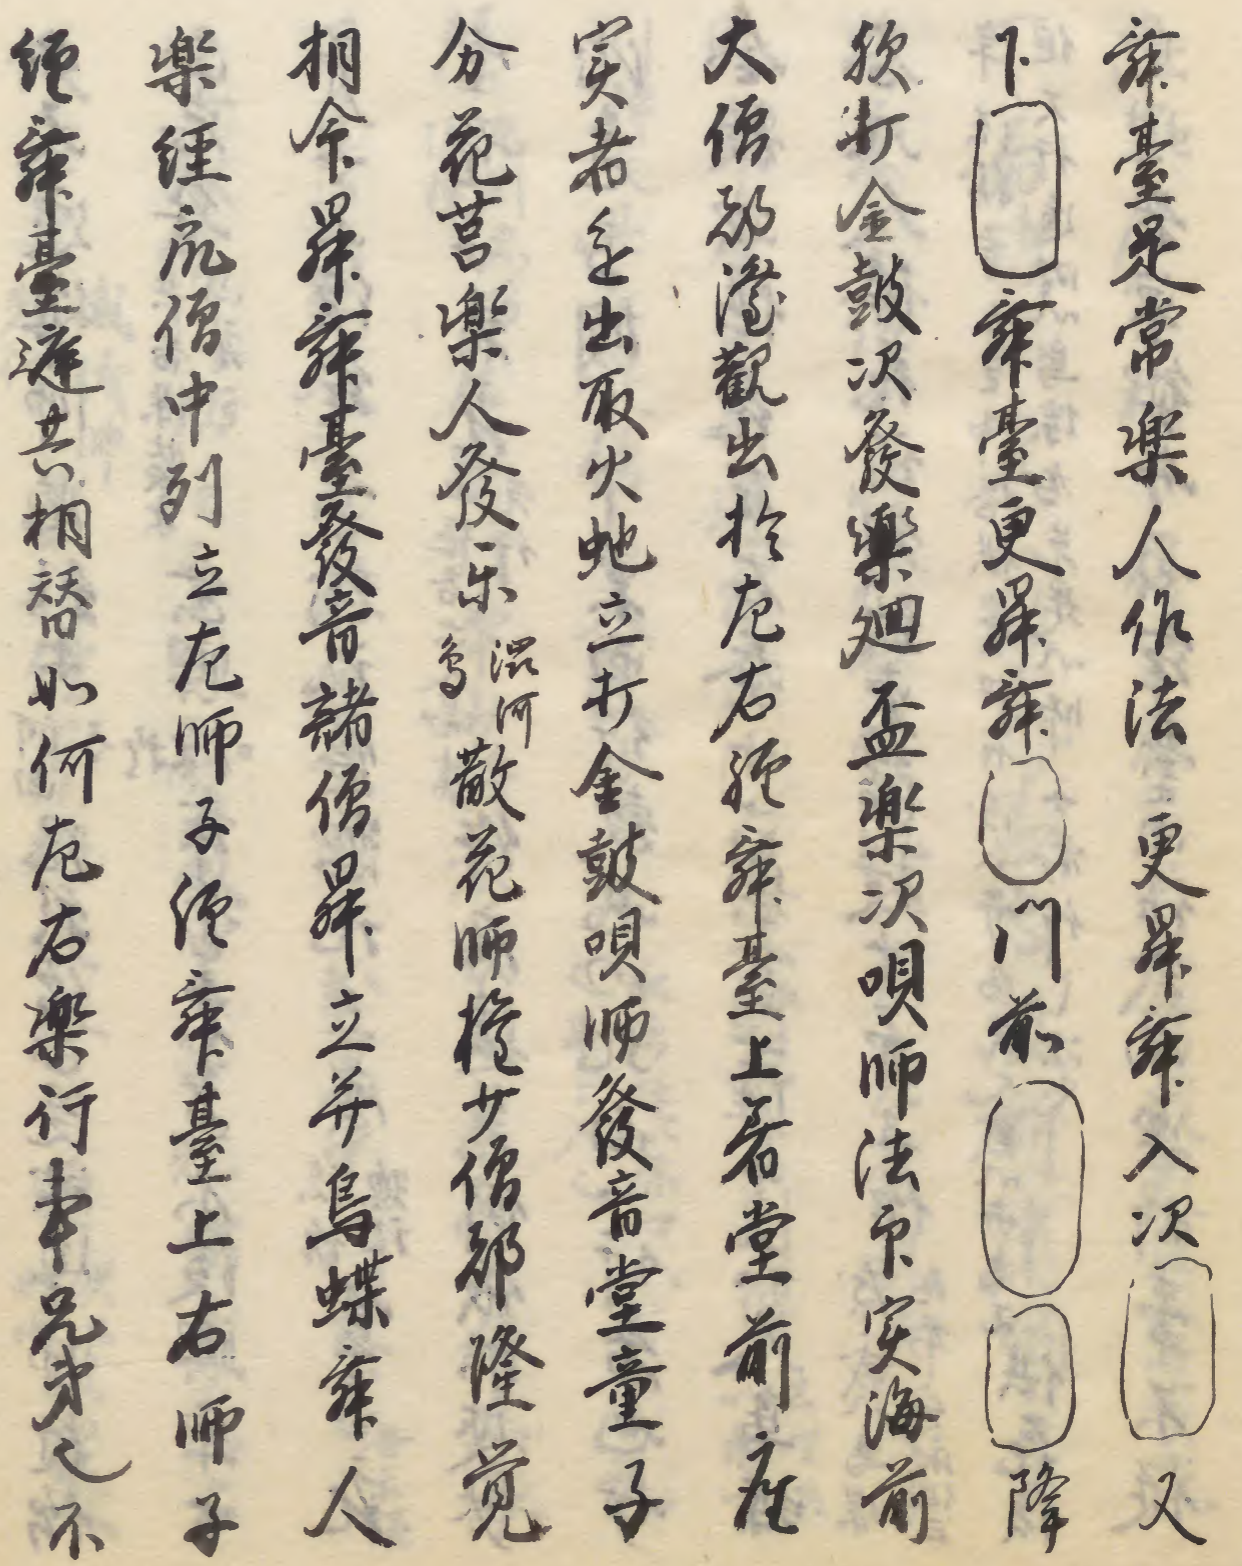 舞臺是常樂人作法更昇舞入次又
下舞臺更昇舞門前降
欲打金鼓次發樂廻盃樂次唄師法印实海前
大僧都澄觀出於左右経舞臺上着堂前座
实者進出取火虵立打金鼓唄師發音堂童子
分花莒樂人發乐渋河鳥散花師権少僧都隆覚
相今昇舞臺發音諸僧昇立并鳥蝶舞人
樂経
僧中列立左師子経舞臺上右師子
経舞臺遅共相替如何左右樂行事兄弟也不